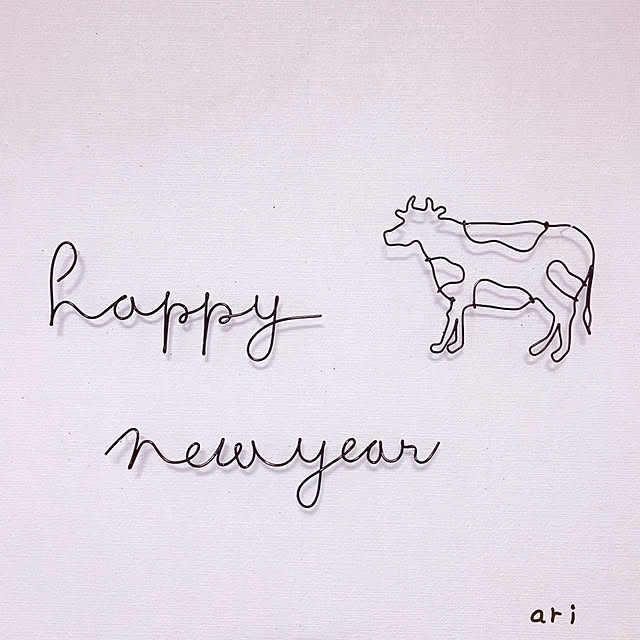 happy
new year
ari